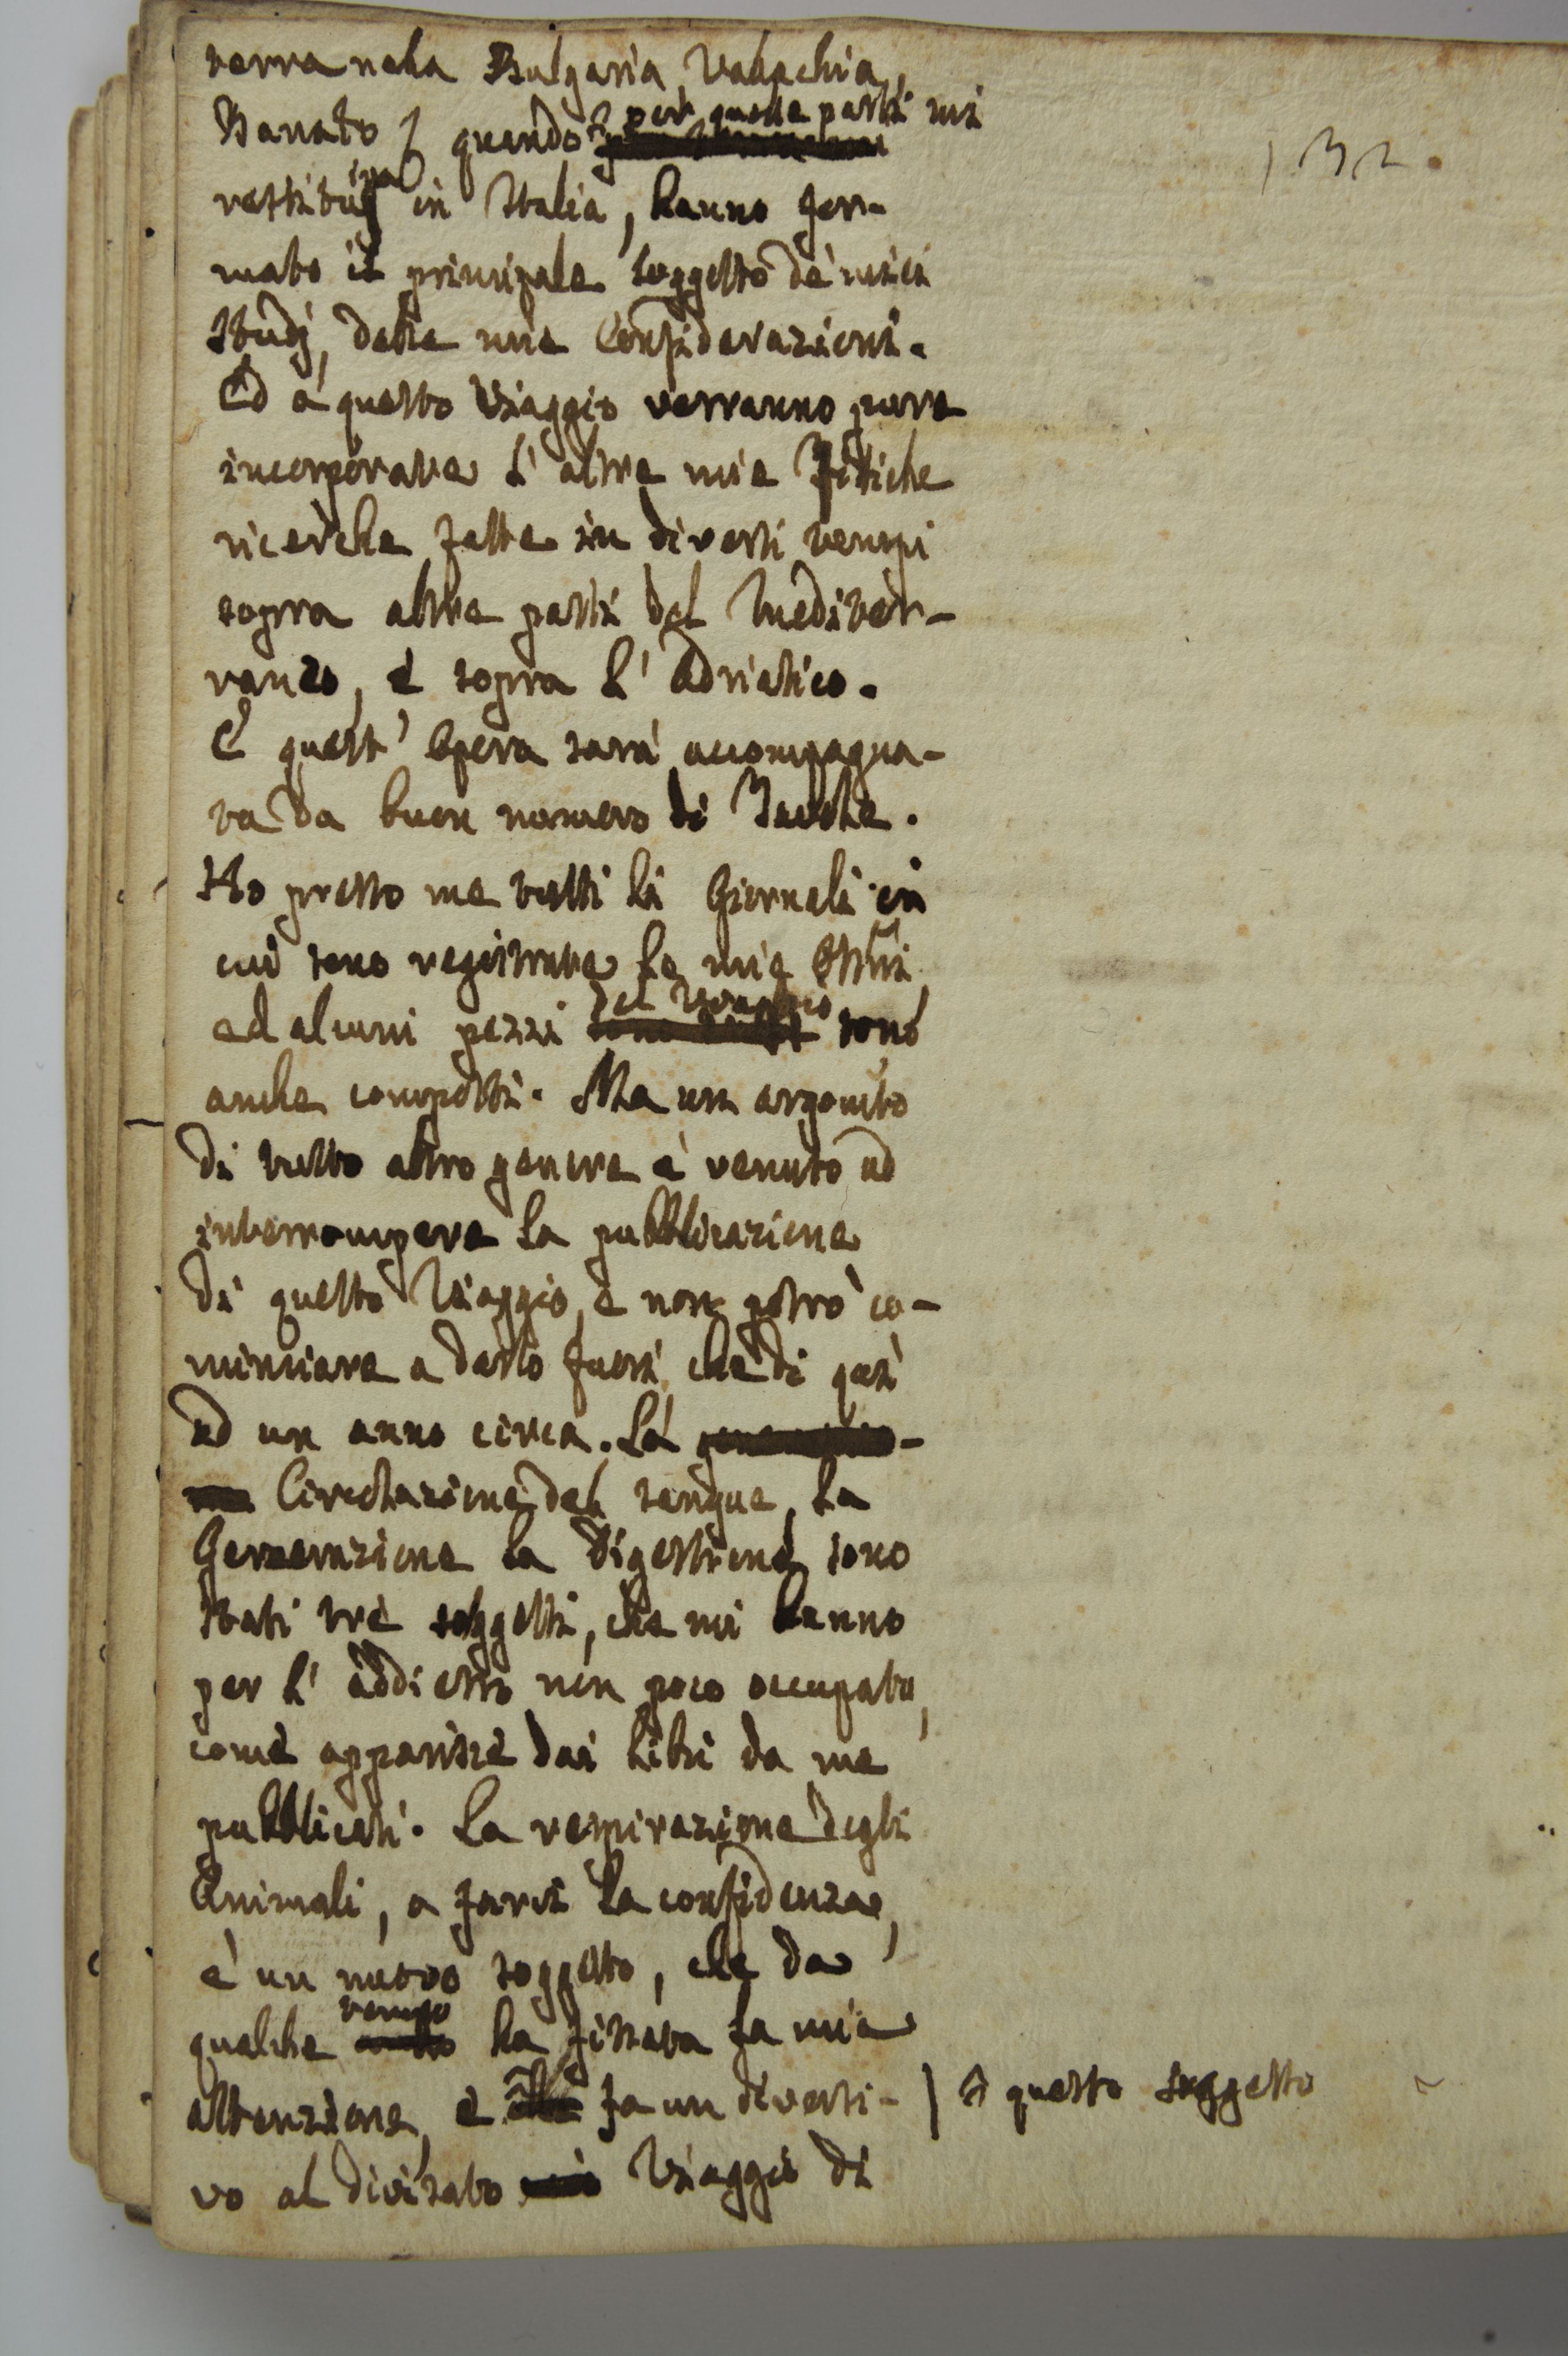 terra nella Bulgaria, Valachia,
Banato &c quando per quelle parti mi
restituiva in Italia, hanno for-
mato il principale soggetto de' miei
Studj, delle mie Considerazioni.
Ed a questo Viaggio verranno pure
incorporate l'altre mie Fisiche
ricerche fatte in diversi tempi
sopra altre parti del Mediter-
raneo, e sopra l'Adriatico.
E quest'Opera sarà accompagna-
ta da buon numero di Tavole.
Ho presso me tutti li Giornali in
cui sono registrate le mie Oss.ni
ed alcuni pezzi del Viaggio sono
anche composti. Ma un argom.to
di tutto altro genere è venuto ad
interrompere la pubblicazione
di questo Viaggio, e non potrò co-
minciare a darlo fuori che di quì
ad un anno circa. La
Circolazione del sangue, la
Generazione la Digestione sono
stati tre soggetti, che mi hanno
per l'addietro non poco occupato,
come apparisce dai libri da me
pubblicati. La respirazione degli
Animali, a farvi la confidenza,
è un nuovo soggetto, che da
qualche tempo ha fissata la mia
attenzione, e fa un diversi-
vo al divisato Viaggio di
132.
questo soggetto